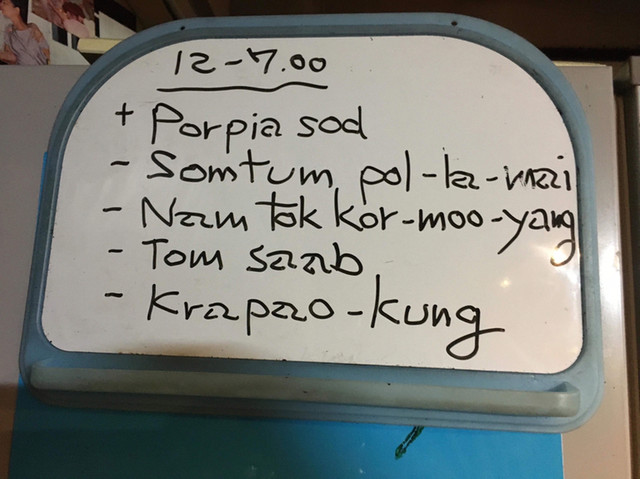 12-7.00
+ Porpia sod
- Somtum pol-la-mai
- Nam tok kor-moo-yang
- Tom saab
- Krapao-kung